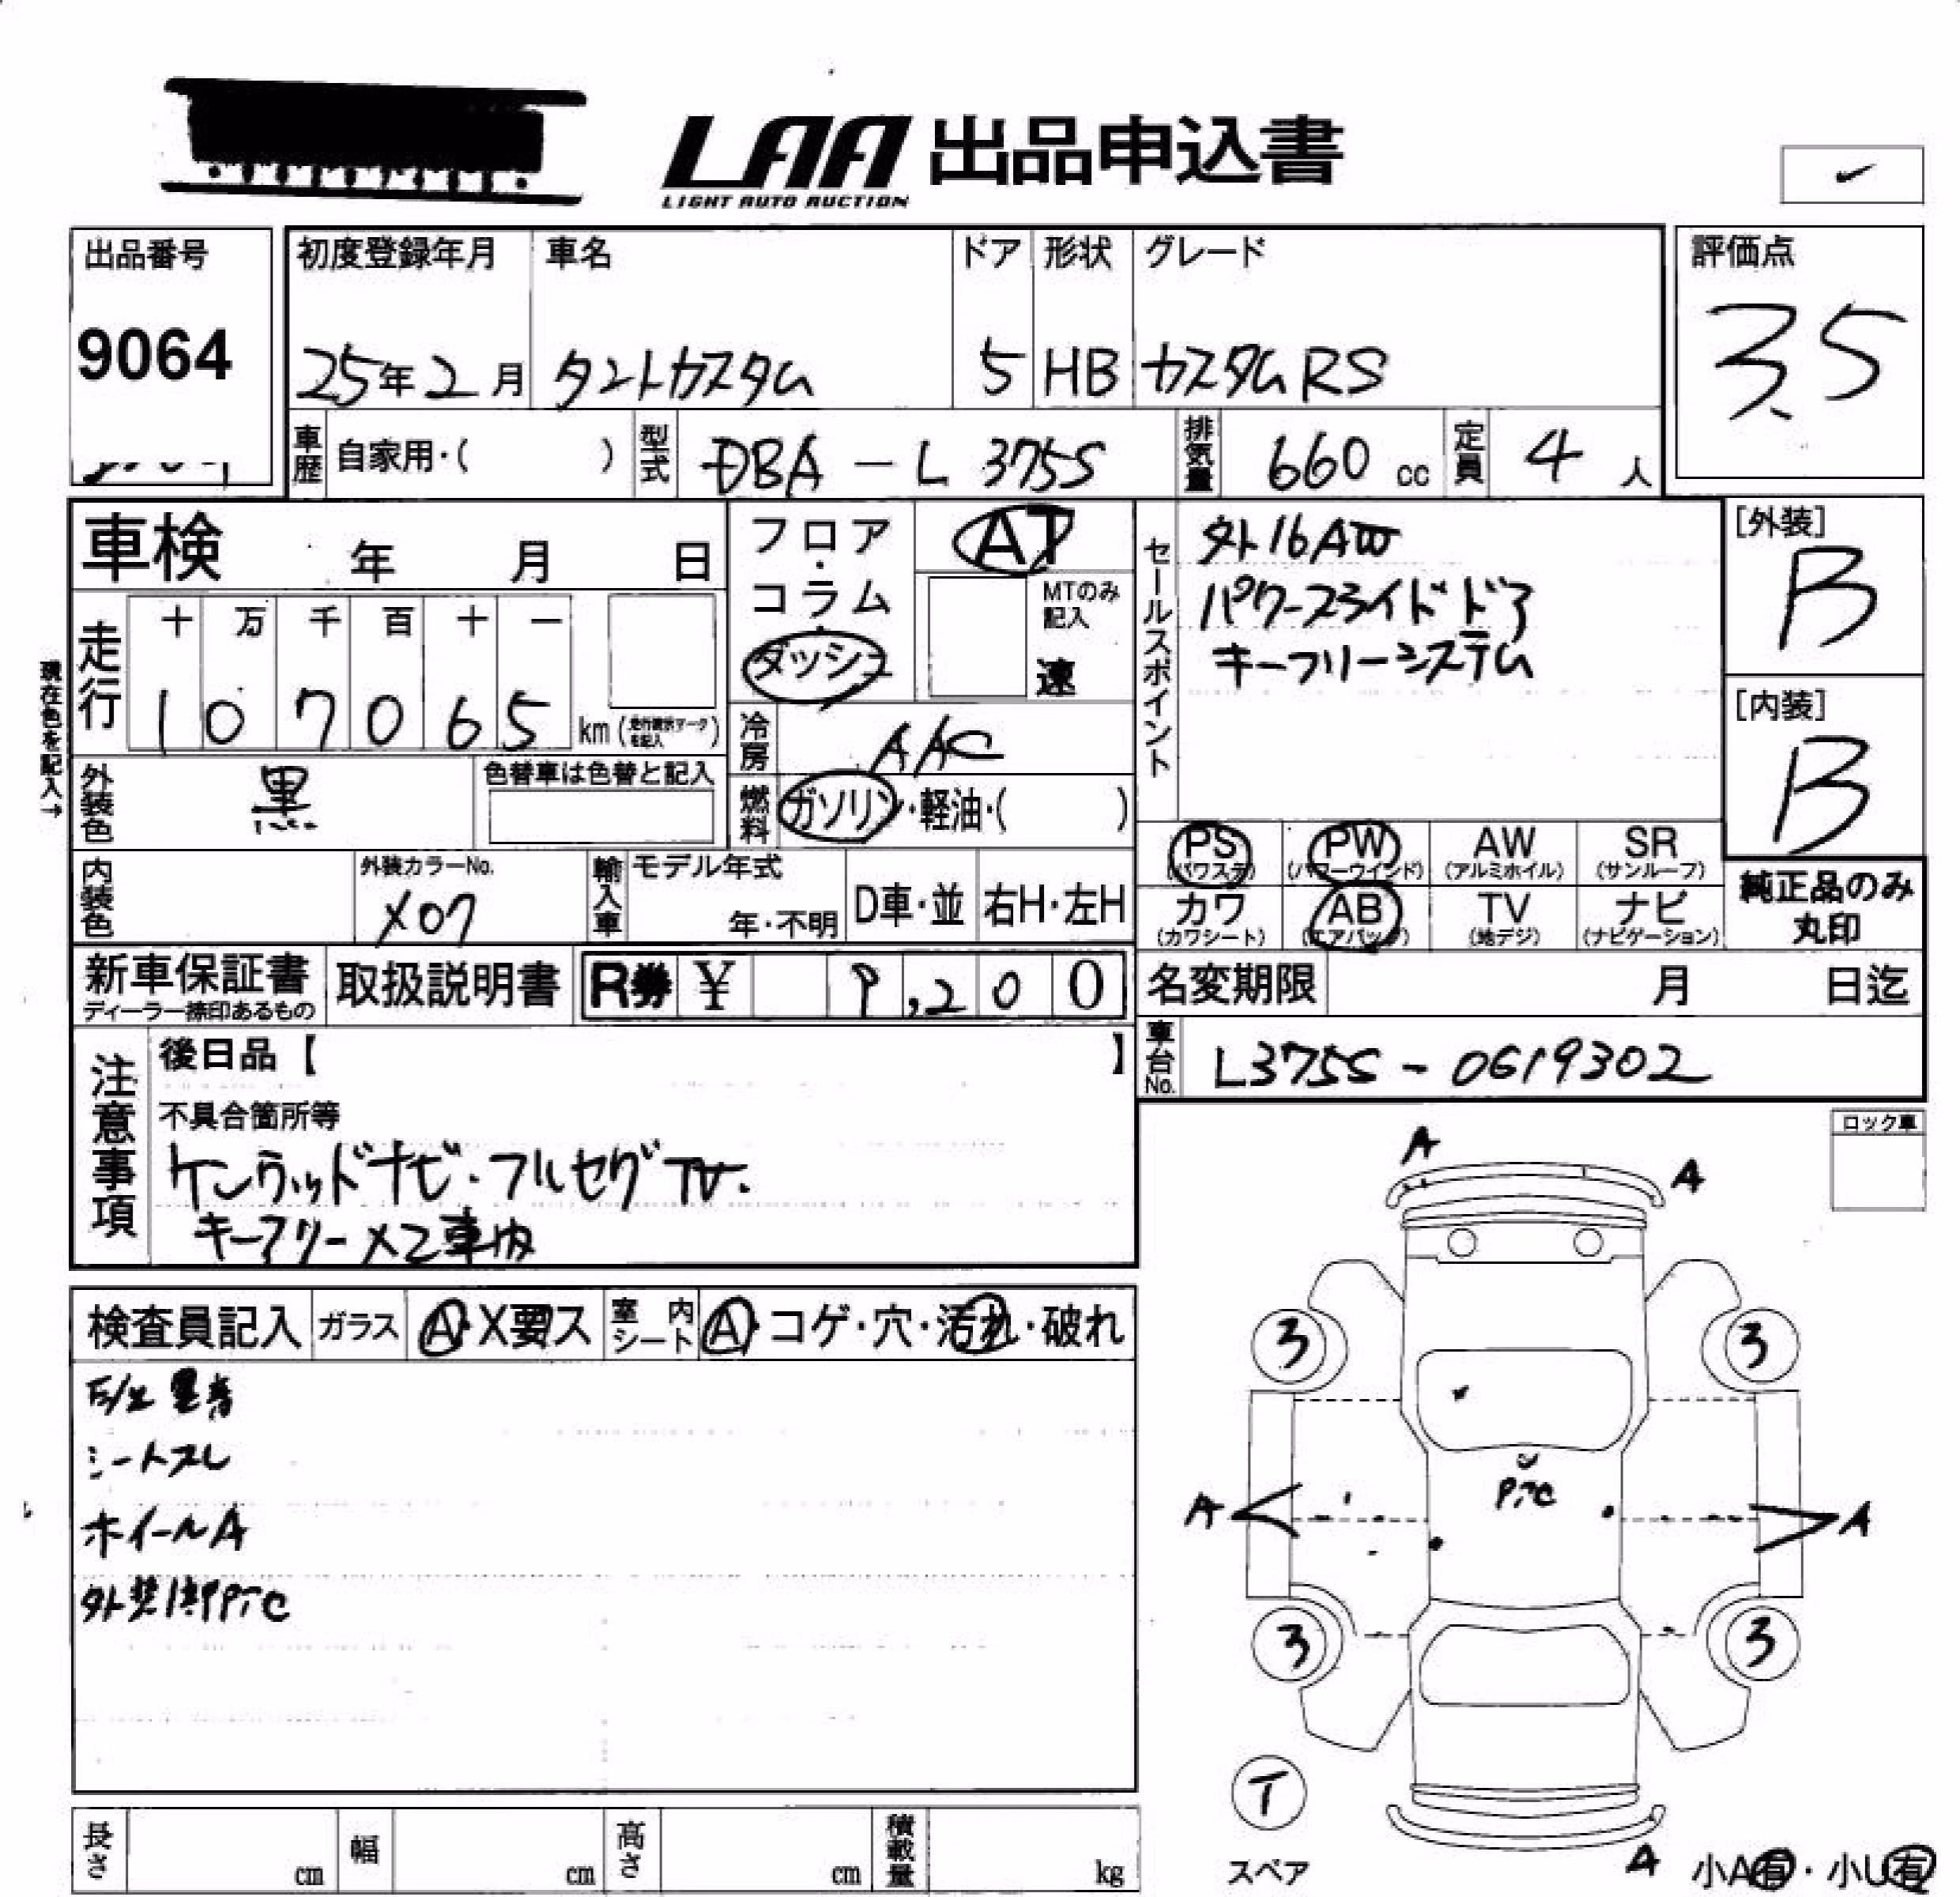 LAA 出品申込書
LIGHT AUTO AUCTION
出品番号
9064
初度登録年月
25年2月
車名
タントカスタム
ドア
5
形状
HB
グレード
カスタムRS
評価点
3.5
車歴 自家用・( )
型式 DBA-L375S
排気量 660 cc
定員 4 人
車検 年 月 日
フロア・コラム・ダッシュ
AT
MTのみ記入
速
セールスポイント
外16AW
パワースライドドア
キーフリーシステム
[外装]
B
[内装]
B
現在色を記入→
走行
十 万 千 百 十 一
1 0 7 0 6 5 km
冷房 AAC
外装色 黒
色替車は色替と記入
燃料 ガソリン・軽油・( )
PS (パワステ) PW (パワーウインド) AW (アルミホイル) SR (サンルーフ)
カワ (カワシート) AB (エアバック) TV (地デジ) ナビ (ナビゲーション)
純正品のみ丸印
内装色
外装カラーNo.
X07
輸入車 モデル年式
年・不明
D車・並
右H・左H
新車保証書
ディーラー捺印あるもの
取扱説明書
R券 ¥ 9,200
名変期限 月 日迄
車台No. L375S-0619302
注意事項
後日品【 】
不具合箇所等
ケンウッドナビ・フルセグTV.
キーフリーメモ車検
ロック車
検査員記入 ガラス A・X要ス 室内シート A・コゲ・穴・汚れ・破れ
シートスレ
ホイールA
A
A
3
3
A
A
3
3
T
スペア
A
小A有・小U有
長さ cm 幅 cm 高さ cm 積載量 kg